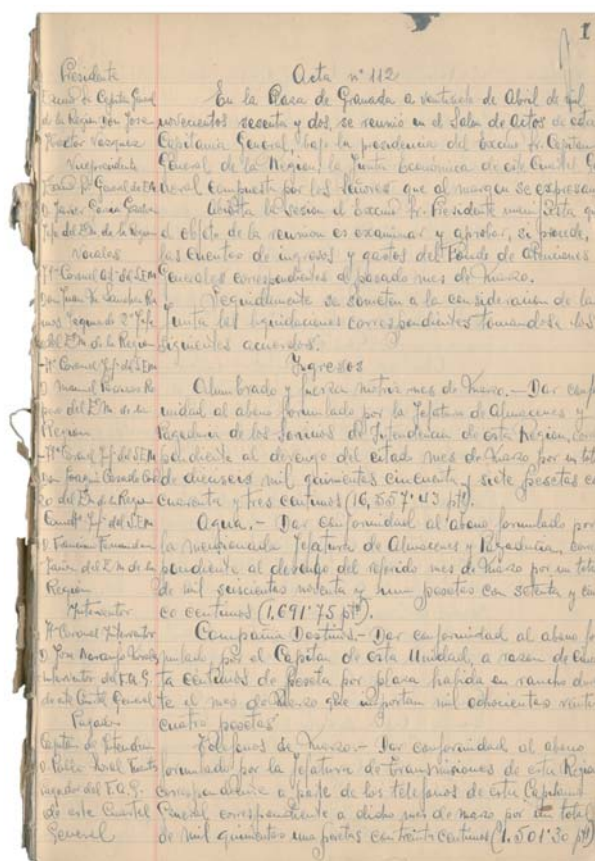 1
Presidente
Excmo Sr Capitan General
de la Region Don Jose
Hector Vazquez
Vicepresidente
Excmo Sr General de E.M.
D. Javier
Jefe del E.M. de la Region
Vocales
Tte Coronel del S.E.M.
Don Juan
2º Jefe
del E.M. de la Region
Tte Coronel del S.E.M.
D. Manuel
del E.M. de la
Region
Tte Coronel del S.E.M.
Don Joaquin
del E.M. de la Region
del S.E.M.
D. Francisco Fernandez
del E.M. de la
Region
Interventor
Tte Coronel Interventor
D. Jose Naranjo
Interventor del F.A.G.
de este Cuartel General
Pagador
Capitan de Intendencia
D. Pablo
Pagador del F.A.G.
de este Cuartel
General
Acta nº 112
En la Plaza de Granada a de Abril de mil
novecientos sesenta y dos, se reunio en el Salon de actos de esta
Capitania General, bajo la presidencia del Excmo Sr. Capitan
General de la Region, la Junta Economica de este Cuartel Ge
neral compuesta por los Señores que al margen se expresan
Abierta la sesion el Excmo Sr. Presidente manifiesta que
el objeto de la reunion es examinar y aprobar, si procede,
las cuentas de ingresos y gastos del Fondo de Atenciones
Generales correspondientes al pasado mes de Marzo.
Seguidamente se someten a la consideracion de la
Junta las liquidaciones correspondientes tomandose los
siguientes acuerdos:
Ingresos
Alumbrado y fuerza motriz mes de Marzo.- Dar confor
midad al abono formulado por la Jefatura de Almacenes y
Pagaduria de los Servicios de Intendencia de esta Region, corres
pondiente al devengo del citado mes de Marzo por un total
de dieciseis mil quinientas cincuenta y siete pesetas con
cuarenta y tres centimos (16,557'43 pts).
Agua.- Dar conformidad al abono formulado por
la mencionada Jefatura de Almacenes y Pagaduria, corres
pondiente al devengo del referido mes de Marzo por un total
de mil seiscientas noventa y una pesetas con setenta y cin
co centimos (1,691'75 pts).
Compañia Destinos.- Dar conformidad al abono for
mulado, por el Capitan de esta Unidad, a razon de
ta centimos de peseta por plaza en rancho duran
te el mes de Marzo que importan mil ochocientas
cuatro pesetas
Telefonos de Marzo.- Dar conformidad al abono
formulado por la Jefatura de Transmisiones de esta Region
correspondiente a parte de los telefonos de esta Capitania
General correspondiente a dicho mes de marzo por un total
de mil quinientas una pesetas con treinta centimos (1,501'30 pts)